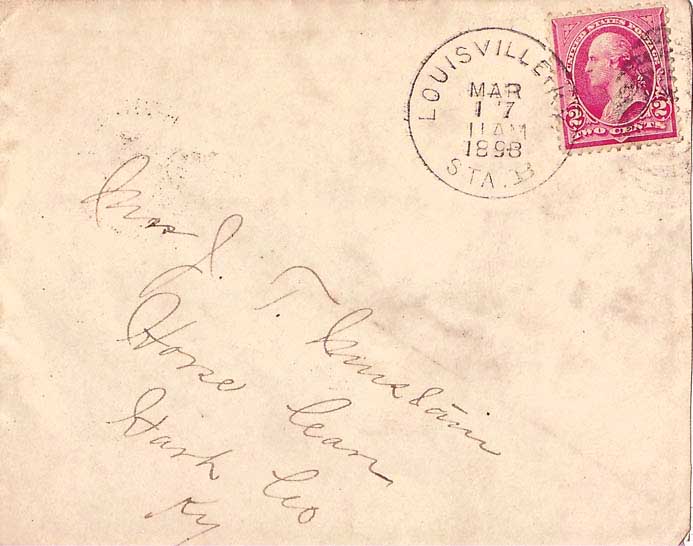 LOUISVILLE, KY.
MAR
17
11 AM
1898
STA. B
UNITED STATES POSTAGE
2 2
TWO CENTS
Mrs J. T.
Horse Cave
Hart Co
Ky